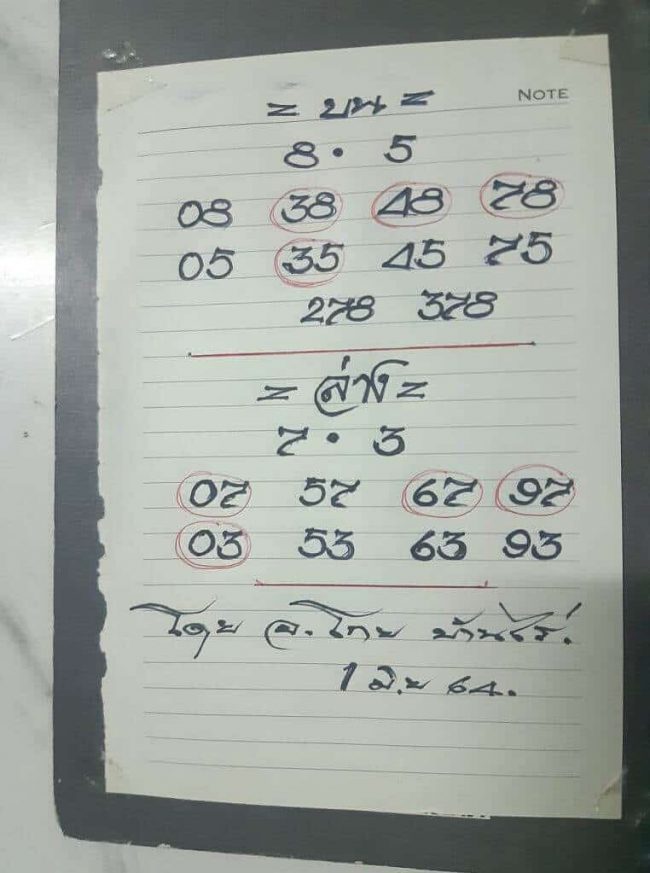 NOTE
= บน =
8 · 5
08 38 48 78
05 35 45 75
278 378
= ล่าง =
7 · 3
07 57 67 97
03 53 63 93
โดย อ. โทย บ้านไร่.
1 มิ.ย 64.